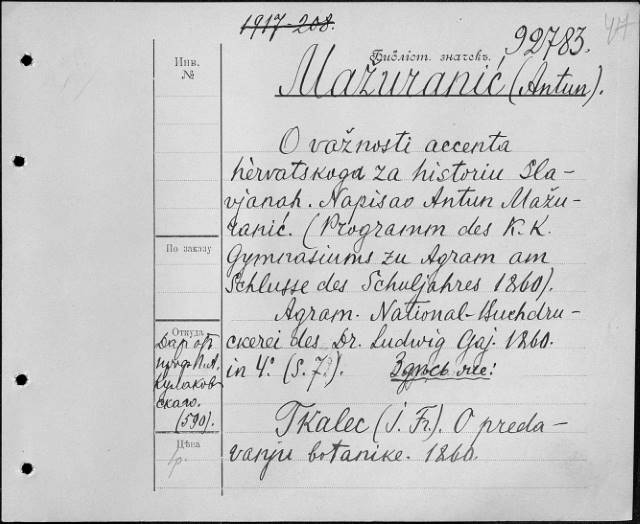 1917-208.
92783.
47
Инв.
№
Библіот. значекъ.
Mažuranić (Antun).
O važnosti accenta
hèrvatskoga za historiu Sla-
vjanah. Napisao Antun Mažu-
ranić. (Programm des K. K.
Gymnasiums zu Agram am
Schlusse des Schuljahres 1860).
Agram. National-Buchdru-
ckerei des Dr. Ludwig Gaj. 1860.
in 4°. (S. 7.). Здѣсь же:
Tkalec (J. Fr.). O preda-
vanju botanike. 1860.
По заказу
Откуда
Даръ отъ
проф. П. А.
Кулаков-
скаго.
(590).
Цѣна